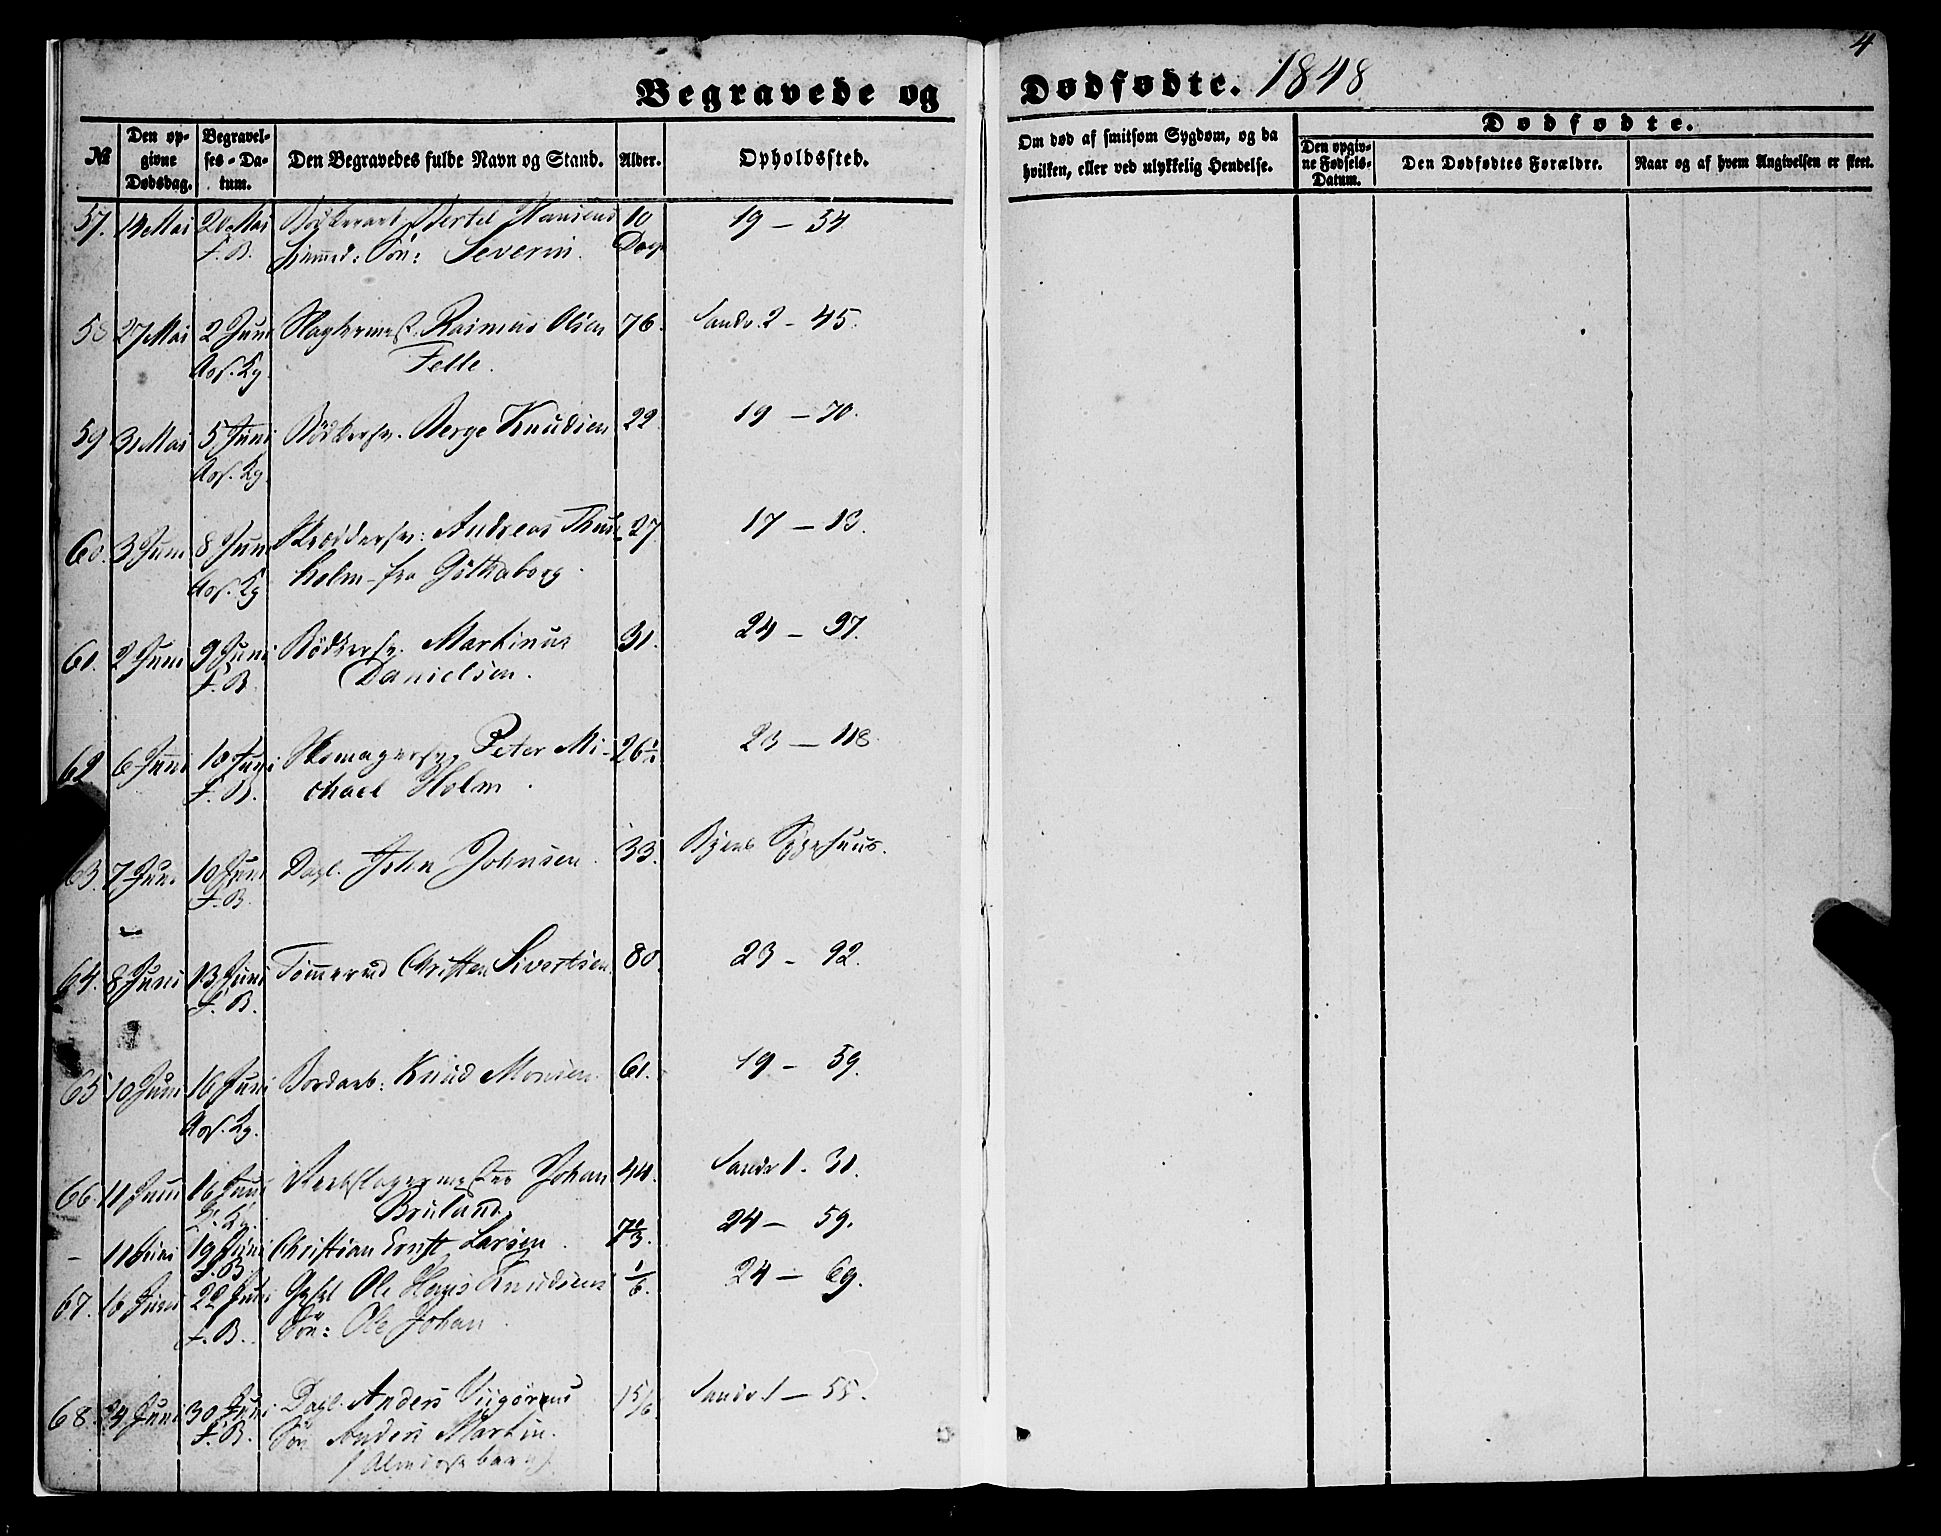 4
Begravede og Dødfødte. 1848
№
Den opgivne Dødsdag.
Begravelses-Datum.
Den Begravedes fulde Navn og Stand.
Alder.
Opholdssted.
Om død af smitsom Sygdom, og da hvilken, eller ved ulykkelig Hendelse.
Dødfødte.
Den opgivne Fødsels-Datum.
Den Dødfødtes Forældre.
Naar og af hvem Angivelsen er skeet.
57. 14 Mai 20 Mai Bertel Hansens 10 19 – 54
F. B. Søn: Severin. Dage
58 27 Mai 2 Juni Slagtermest. Rasmus Olsen 76. Sandv. 2 – 45.
Ass. Kg. Felle.
59 31 Mai 5 Juni Bödkersv. Berge Knudsen 22 19 – 70.
Ass. Kg.
60. 3 Juni 8 Juni Skrædersv: Andreas 27 17 – 13.
Ass. Kg holm fra Göthaborg.
61. 2 Juni 9 Juni Bödkersv. Martinus 31. 24 – 97.
F. B. Danielsen.
62 6 Juni 10 Juni Skomagersv. Peter Mi- 26 23 – 118
F. B. chael Holm.
63. 7 Juni 10 Juni Dagl. John Johnsen. 33. Byens Sygehuus.
F. B.
64. 8 Juni 13 Juni Tømmermd Christen Sivertsen 80. 23 – 92.
F. B.
65 10 Juni 16 Juni Bordarb: Knud Monsen. 61. 19 – 59.
Ass. Kg.
66. 11 Juni 16 Juni Reebslagermester Johan 44. Sandv 1. 31.
Kg. Bruland
– 11 Juni 19 Juni Christian Ernst Larsen. 24 – 59.
F. B.
67. 16 Juni 22 Juni Ole Knudsens 1/6. 24 – 69.
F. B. Søn: Ole Johan.
68. 24 Juni 30 Juni Dagl. Anders 1 5/6. Sandv. 1 – 55.
F. B. Søn Anders Martin.